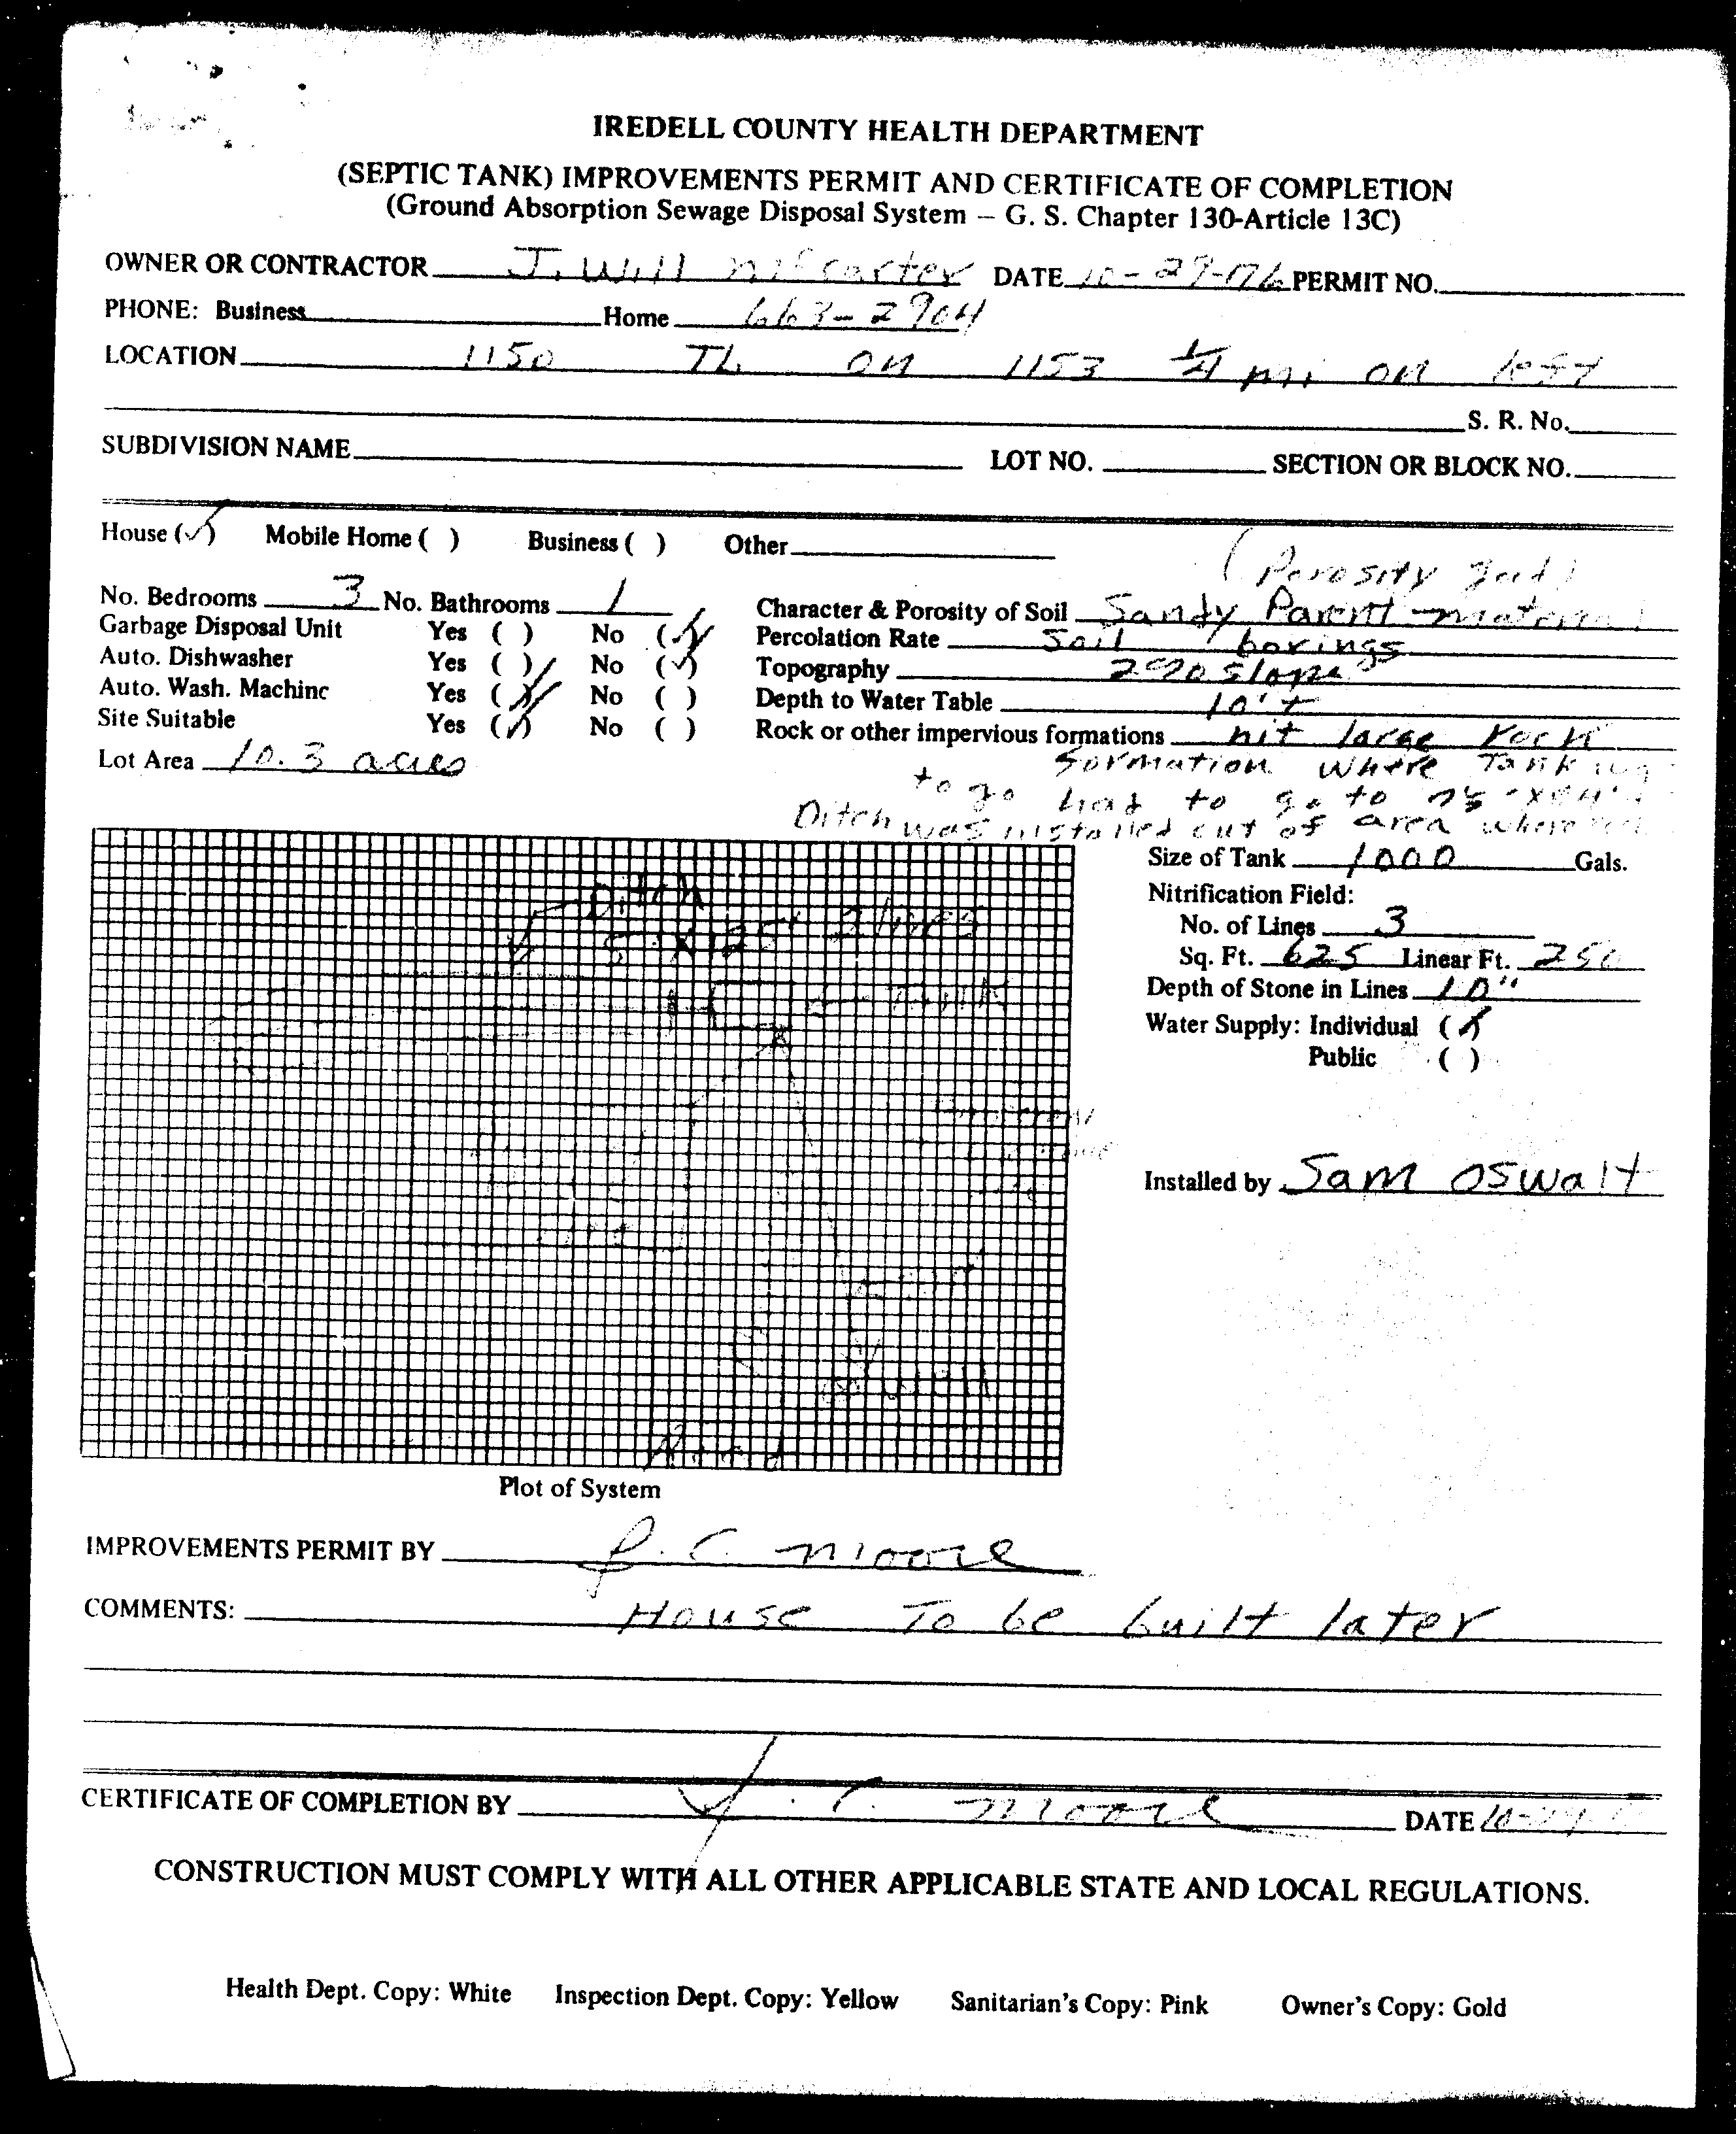 IREDELL COUNTY HEALTH DEPARTMENT
(SEPTIC TANK) IMPROVEMENTS PERMIT AND CERTIFICATE OF COMPLETION
(Ground Absorption Sewage Disposal System – G. S. Chapter 130-Article 13C)
OWNER OR CONTRACTOR J. Will DATE 10-29-76 PERMIT NO.
PHONE: Business Home 663-2904
LOCATION 1150 TL on 1153 1/4 mi on left
S. R. No.
SUBDIVISION NAME LOT NO. SECTION OR BLOCK NO.
House (✓) Mobile Home ( ) Business ( ) Other
(Porosity
No. Bedrooms 3 No. Bathrooms 1 Character & Porosity of Soil Sandy Parent material
Garbage Disposal Unit Yes ( ) No (✓) Percolation Rate Soil borings
Auto. Dishwasher Yes ( ) No (✓) Topography 2% slope
Auto. Wash. Machine Yes (✓) No ( ) Depth to Water Table 10'+
Site Suitable Yes (✓) No ( ) Rock or other impervious formations hit large rock
Lot Area 10.3 acres formation where Tank was
to go had to go to
Ditch was installed out of area where
Ditch
5' x 125' 2 lines
Size of Tank 1000 Gals.
Nitrification Field:
No. of Lines 3
Sq. Ft. 625 Linear Ft. 250
Depth of Stone in Lines 10"
Water Supply: Individual (✓)
Public ( )
Installed by Sam Oswalt
Road
Plot of System
IMPROVEMENTS PERMIT BY J. C. Moore
COMMENTS: House To be built later
CERTIFICATE OF COMPLETION BY J. C. Moore DATE
CONSTRUCTION MUST COMPLY WITH ALL OTHER APPLICABLE STATE AND LOCAL REGULATIONS.
Health Dept. Copy: White Inspection Dept. Copy: Yellow Sanitarian's Copy: Pink Owner's Copy: Gold